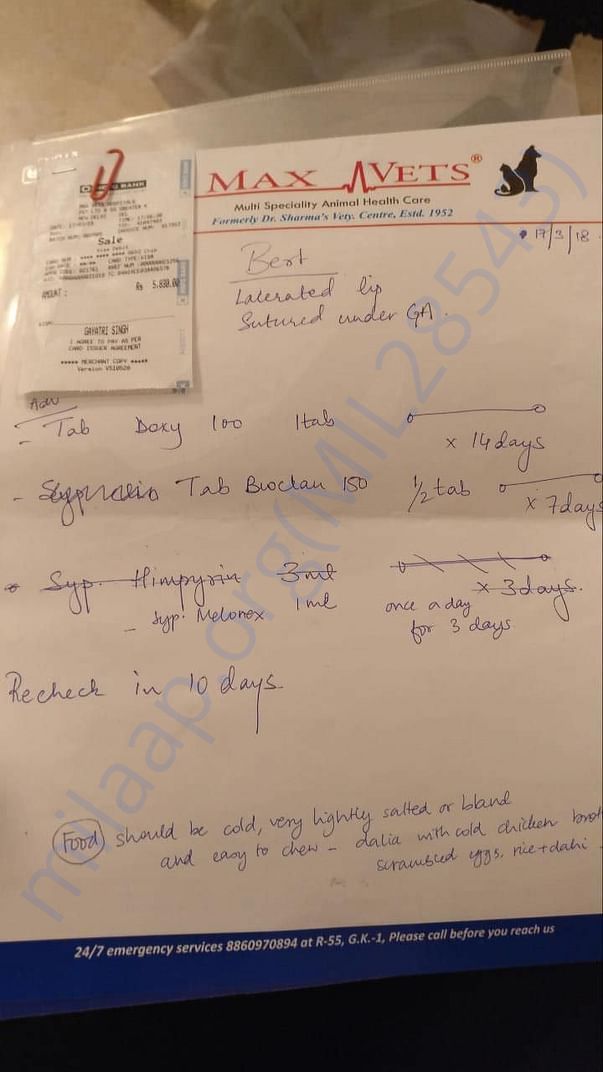 MAX VETS®
Multi Speciality Animal Health Care
Formerly Dr. Sharma's Vety. Centre, Estd. 1952
17/3/18
BANK
NEW DELHI
Sale
AMOUNT : Rs 5,830.00
SIGN:
GAYATRI SINGH
I AGREE TO PAY AS PER
CARD ISSUER AGREEMENT
***** MERCHANT COPY *****
Bert
Lacerated lip
Sutured under GA.
Adv
- Tab Doxy 100 1tab
x 14 days
- Tab Bioclan 150 1/2 tab
x 7 days
Syp. Himpyrin 3ml
x 3 days.
- Syp. Melonex 1ml once a day
for 3 days.
Recheck in 10 days
Food should be cold, very lightly salted or bland
and easy to chew - dalia with cold chicken brot
scrambled eggs. rice + dahi
24/7 emergency services 8860970894 at R-55, G.K.-1, Please call before you reach us
milaap.org(MIL28543)